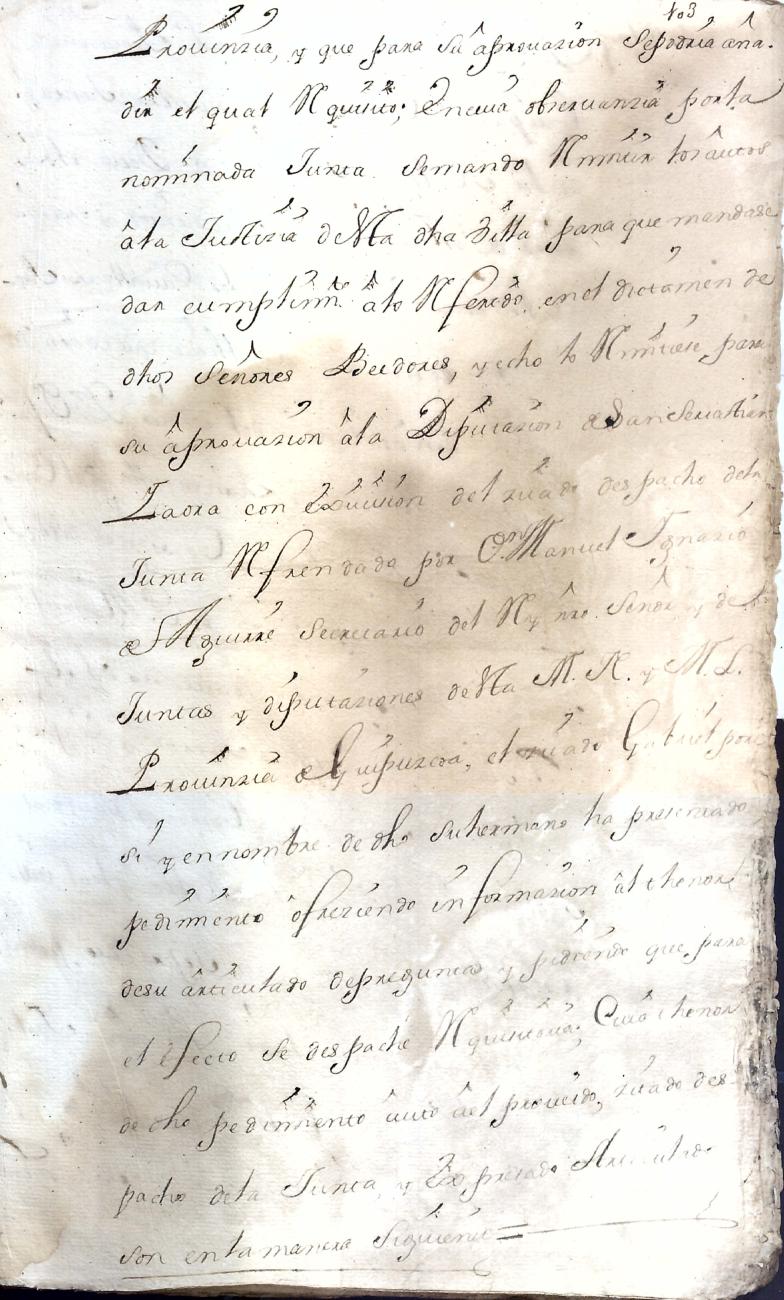 103
Provinzia, y que para su aprovazion sepodria aña-
dir el qual Requisito; Encuia observanzia porla
nominada Junta semando Remitir los autos
âla Justizia deSta dha Villa para que mandase
dar cumplimto âlo Referido en el dictamen de
dhos Señores Beedores, y echo lo Remitiese para
su âprovazion âla Diputazion de San Sevastian
Iaora con Exivision del zitado despacho dela
Junta Refrendada por Dn Manuel Ignazio
de Aguirre Secretario del Rey nro Señor y de
Juntas y diputaziones deSta M. N. y M. L.
Provinzia de Guipuzcoa, el zitado Gabriel por
si y en nombre de dho suhermano ha presentado
pedimiento ôfreziendo informazion âl thenor
desu ârticulado depreguntas y pidiendo que para
el efecto se despache Requisitoria; Cuio thenor
de dho pedimiento auto âel proveido, zitado des-
pacho dela Junta, y Expresado Articulado
son enla manera Siguiente =